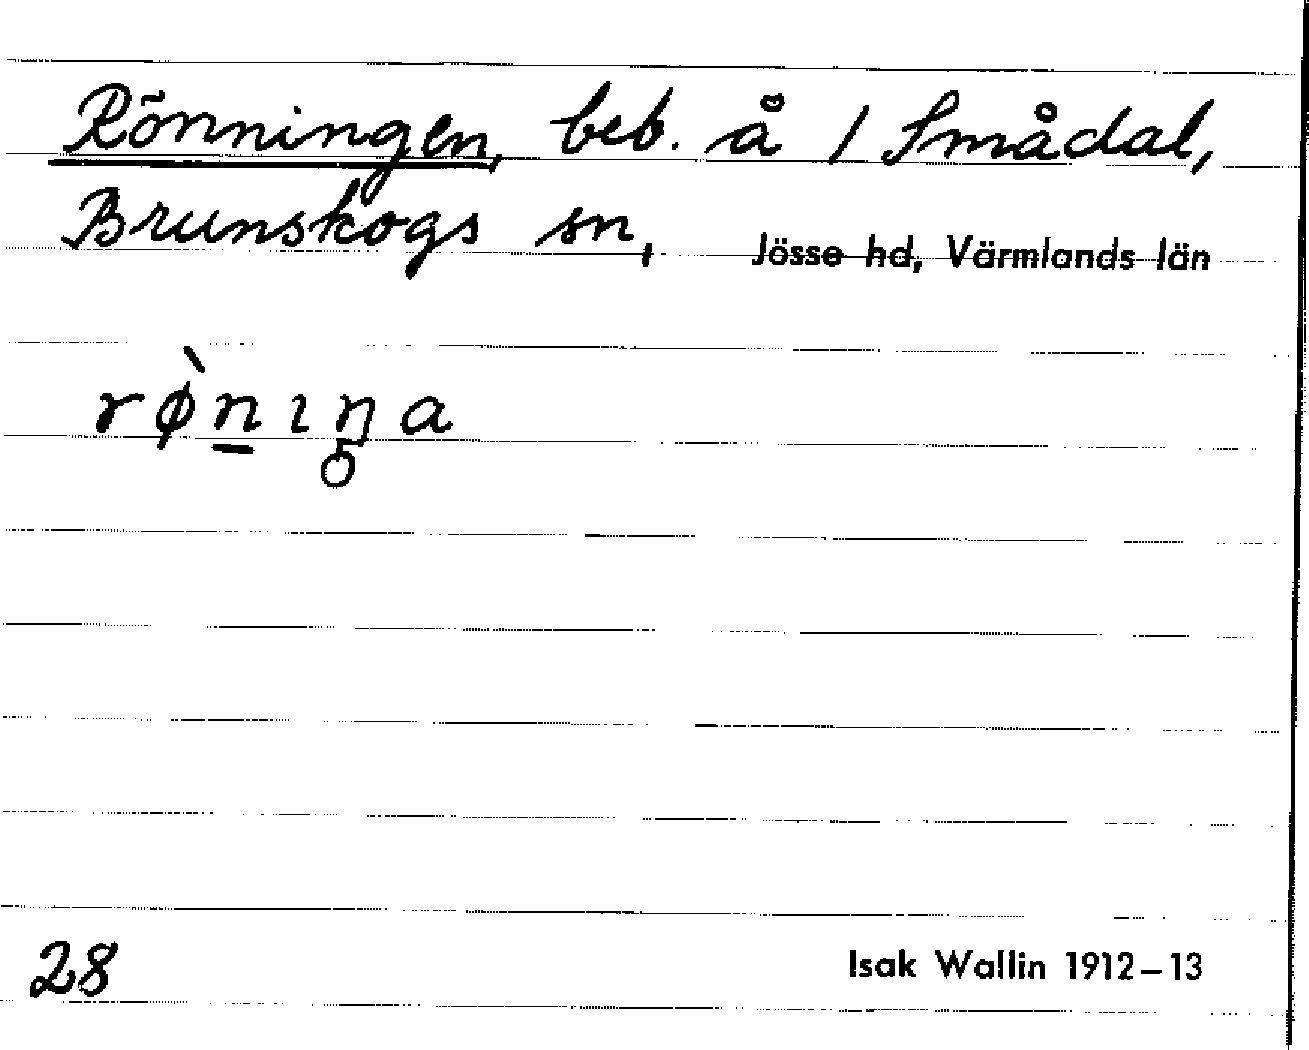 Rönningen, beb. å 1 Smådal,
Brunskogs sn, Jösse hd, Värmlands län
rø̀n̲ıŋ̥a
28 Isak Wallin 1912–13